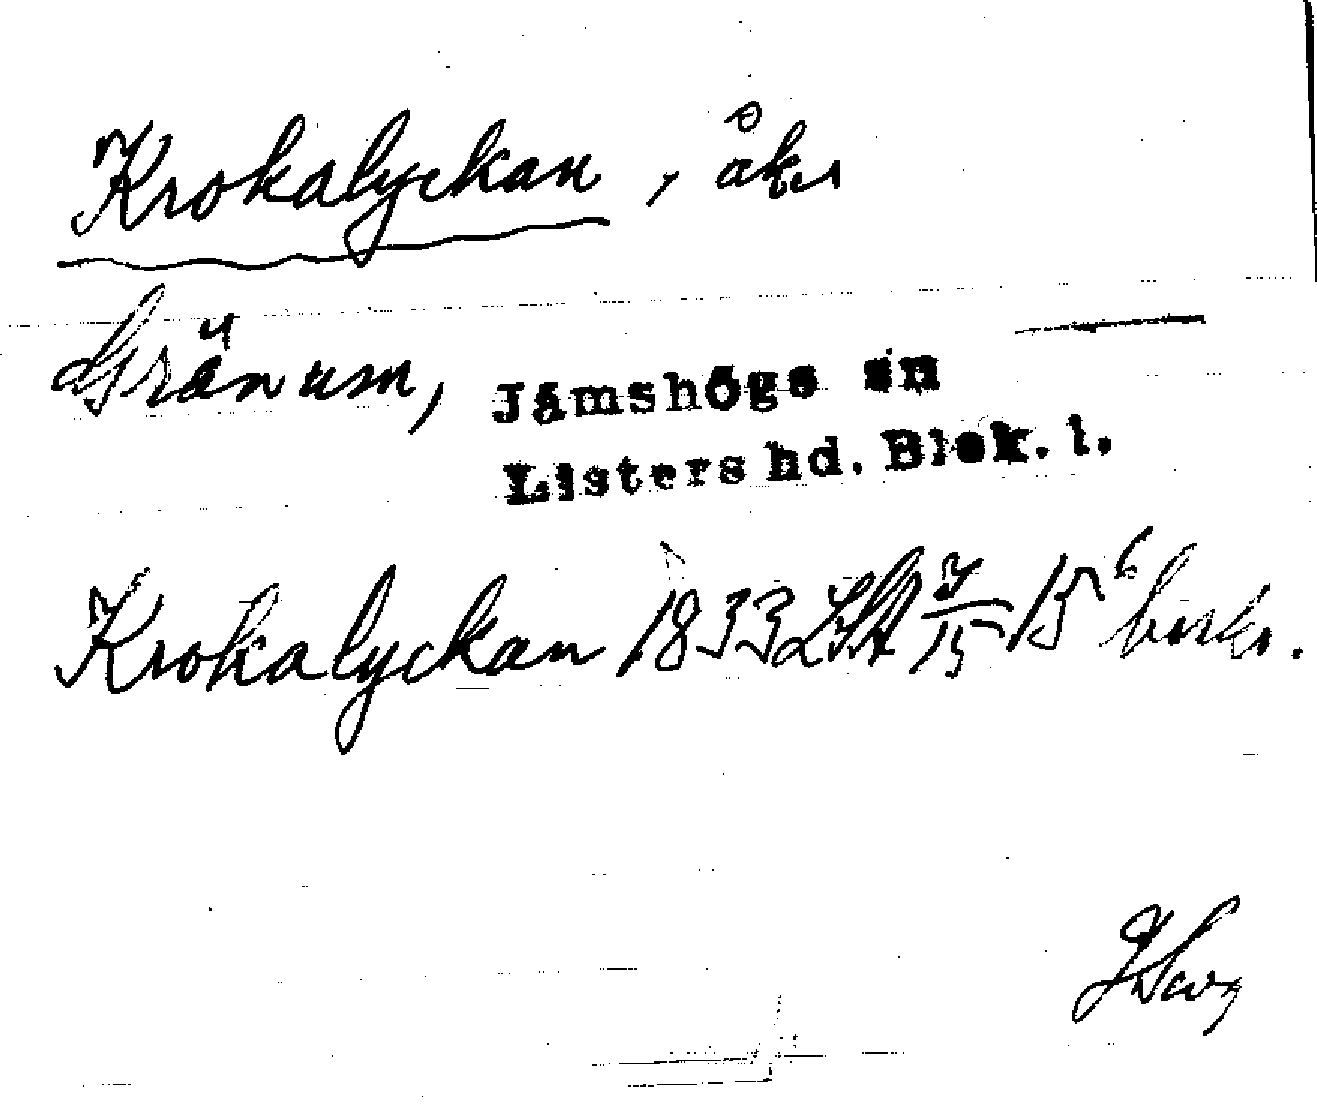 Krokalyckan, åker
Gränum, Jämshögs sn
Listers hd. Blek. l.
Krokalyckan 1833 LSA 15⁶